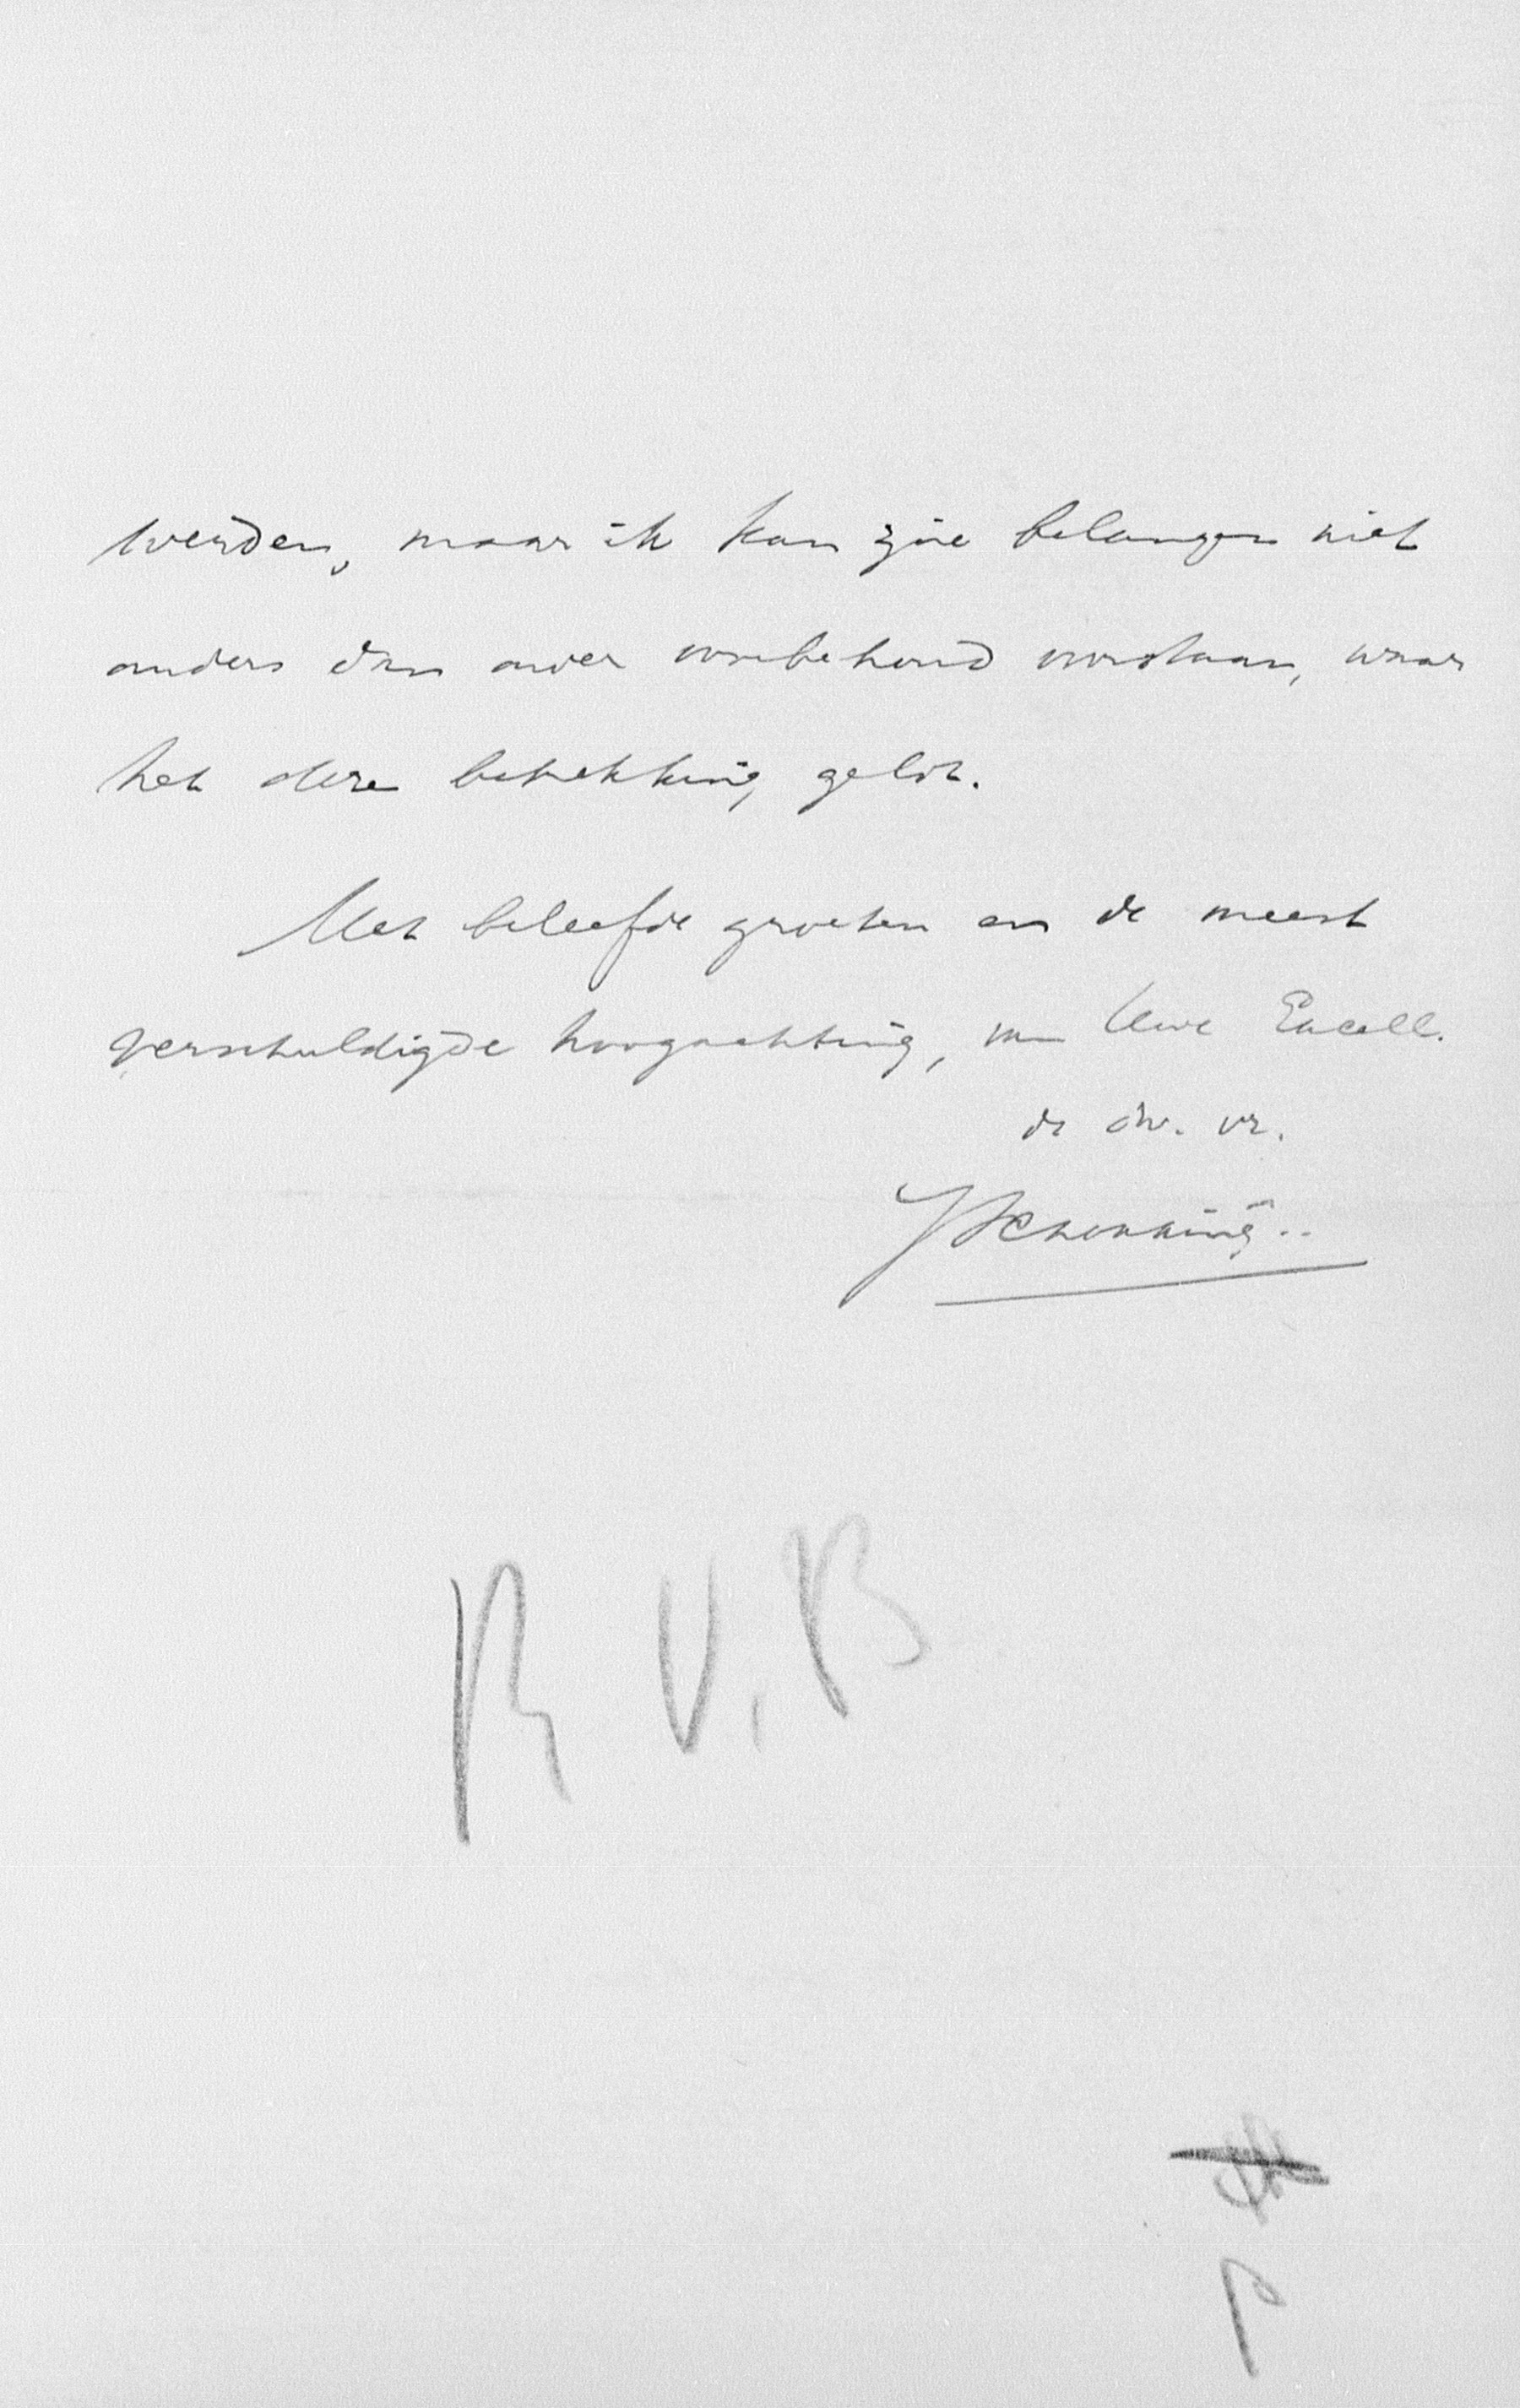 werden, maar ik kan zijne belangen niet
anders dan onder voorbehoud voorstaan, waar
het deze betrekking geldt.
Met beleefde groeten en de meest
verschuldigde hoogachting, van Uwe Excell.
de dw. dr.
JSchokking..
R V. B
P